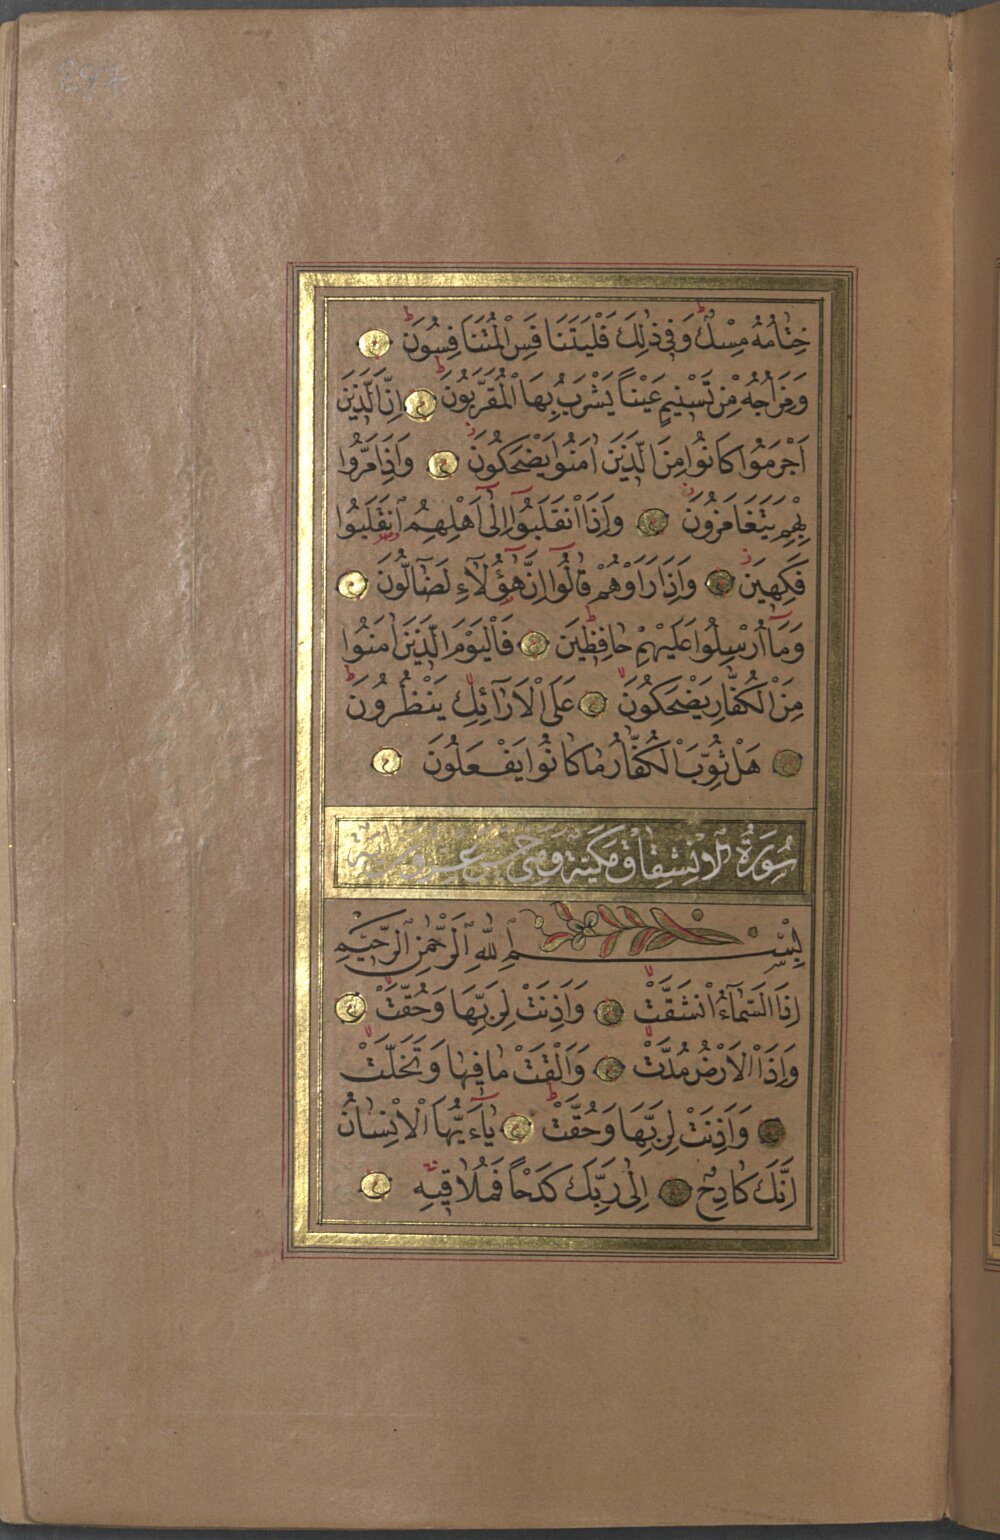 خِتَامُهُ مِسْكٌ وَفِي ذٰلِكَ فَلْيَتَنَافَسِ الْمُتَنَافِسُونَ
وَمِزَاجُهُ مِنْ تَسْنِيمٍ عَيْنًا يَشْرَبُ بِهَا الْمُقَرَّبُونَ اِنَّ الَّذِينَ
اَجْرَمُوا كَانُوا مِنَ الَّذِينَ اٰمَنُوا يَضْحَكُونَ وَاِذَا مَرُّوا
بِهِمْ يَتَغَامَزُونَ وَاِذَا انْقَلَبُوا اِلٰى اَهْلِهِمُ انْقَلَبُوا
فَكِهِينَ وَاِذَا رَاَوْهُمْ قَالُوا اِنَّ هٰؤُلَاءِ لَضَالُّونَ
وَمَا اُرْسِلُوا عَلَيْهِمْ حَافِظِينَ فَالْيَوْمَ الَّذِينَ اٰمَنُوا
مِنَ الْكُفَّارِ يَضْحَكُونَ عَلَى الْاَرَائِكِ يَنْظُرُونَ
هَلْ ثُوِّبَ الْكُفَّارُ مَا كَانُوا يَفْعَلُونَ
سُورَةُ الانْشِقَاق مَكِّيَّة وَهِيَ خمس وعشرون اية
بِسْمِ اللّٰهِ الرَّحْمٰنِ الرَّحِيمِ
اِذَا السَّمَاءُ انْشَقَّتْ وَاَذِنَتْ لِرَبِّهَا وَحُقَّتْ
وَاِذَا الْاَرْضُ مُدَّتْ وَاَلْقَتْ مَا فِيهَا وَتَخَلَّتْ
وَاَذِنَتْ لِرَبِّهَا وَحُقَّتْ يَا اَيُّهَا الْاِنْسَانُ
اِنَّكَ كَادِحٌ اِلٰى رَبِّكَ كَدْحًا فَمُلَاقِيهِ